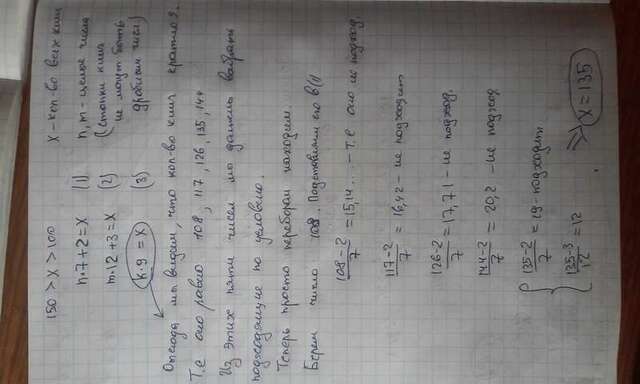 150 > X > 100
X - кол-во всех книг
n·7+2 = X (1)
n, m - целые числа
m·12+3 = X (2)
(стопки книг
не могут быть
дробным числ)
k·9 = X (3)
Отсюда мы видим, что кол-во книг кратно 9.
Т.е оно равно 108, 117, 126, 135, 144
Из этих пяти чисел мы должны выбрать
подходящие по условию.
Теперь просто перебором находим.
Берем число 108. Подставляем его в (1)
108-2/7 = 15,14... - т.е оно не подход.
117-2/7 = 16,42 - не подходит
126-2/7 = 17,71 - не подход.
144-2/7 = 20,2 - не подход
{ 135-2/7 = 19 - подходит
135-3/12 = 12
=> X = 135